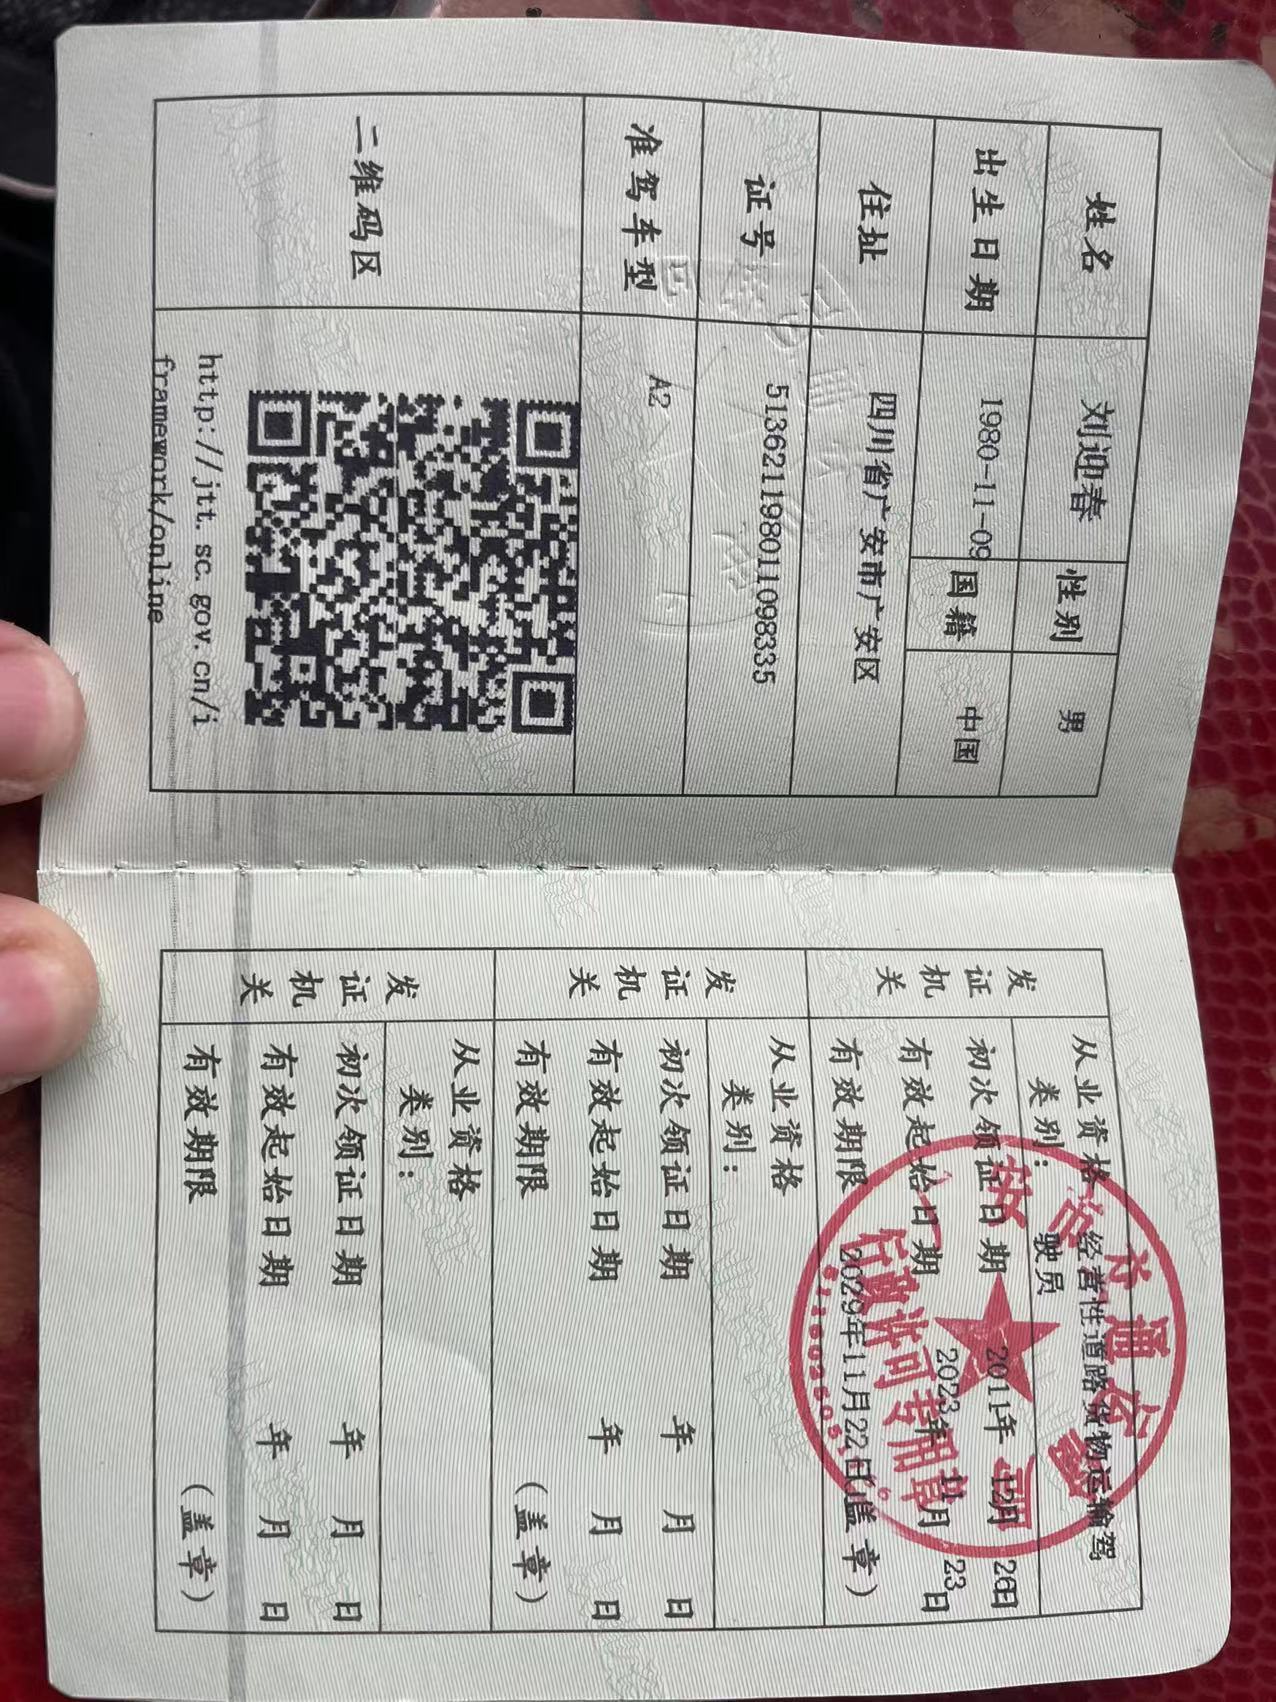 姓名 刘迎春 性别 男
出生日期 1980-11-09 国籍 中国
住址 四川省广安市广安区
证号 513621198011098335
准驾车型 A2
二维码区
http://jtt.sc.gov.cn/i
framework/online
发证机关
从业资格类别： 经营性道路货物运输驾
驶员
初次领证日期 2011年 12月 26日
有效起始日期 2023年 11月 23日
有效期限 2029年11月22日（盖章）
行政许可专用章
发证机关
从业资格
类别：
初次领证日期 年 月 日
有效起始日期 年 月 日
有效期限 （盖章）
发证机关
从业资格
类别：
初次领证日期 年 月 日
有效起始日期 年 月 日
有效期限 （盖章）